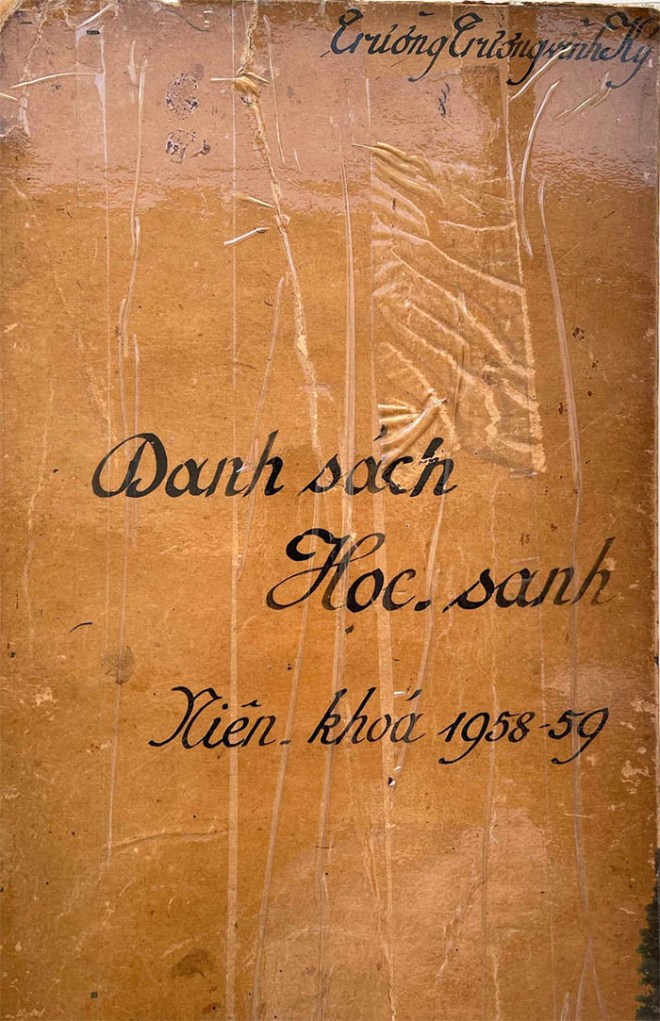 Trường Trương vĩnh Ký
Danh sách
Học. sanh
Niên. khoá 1958-59